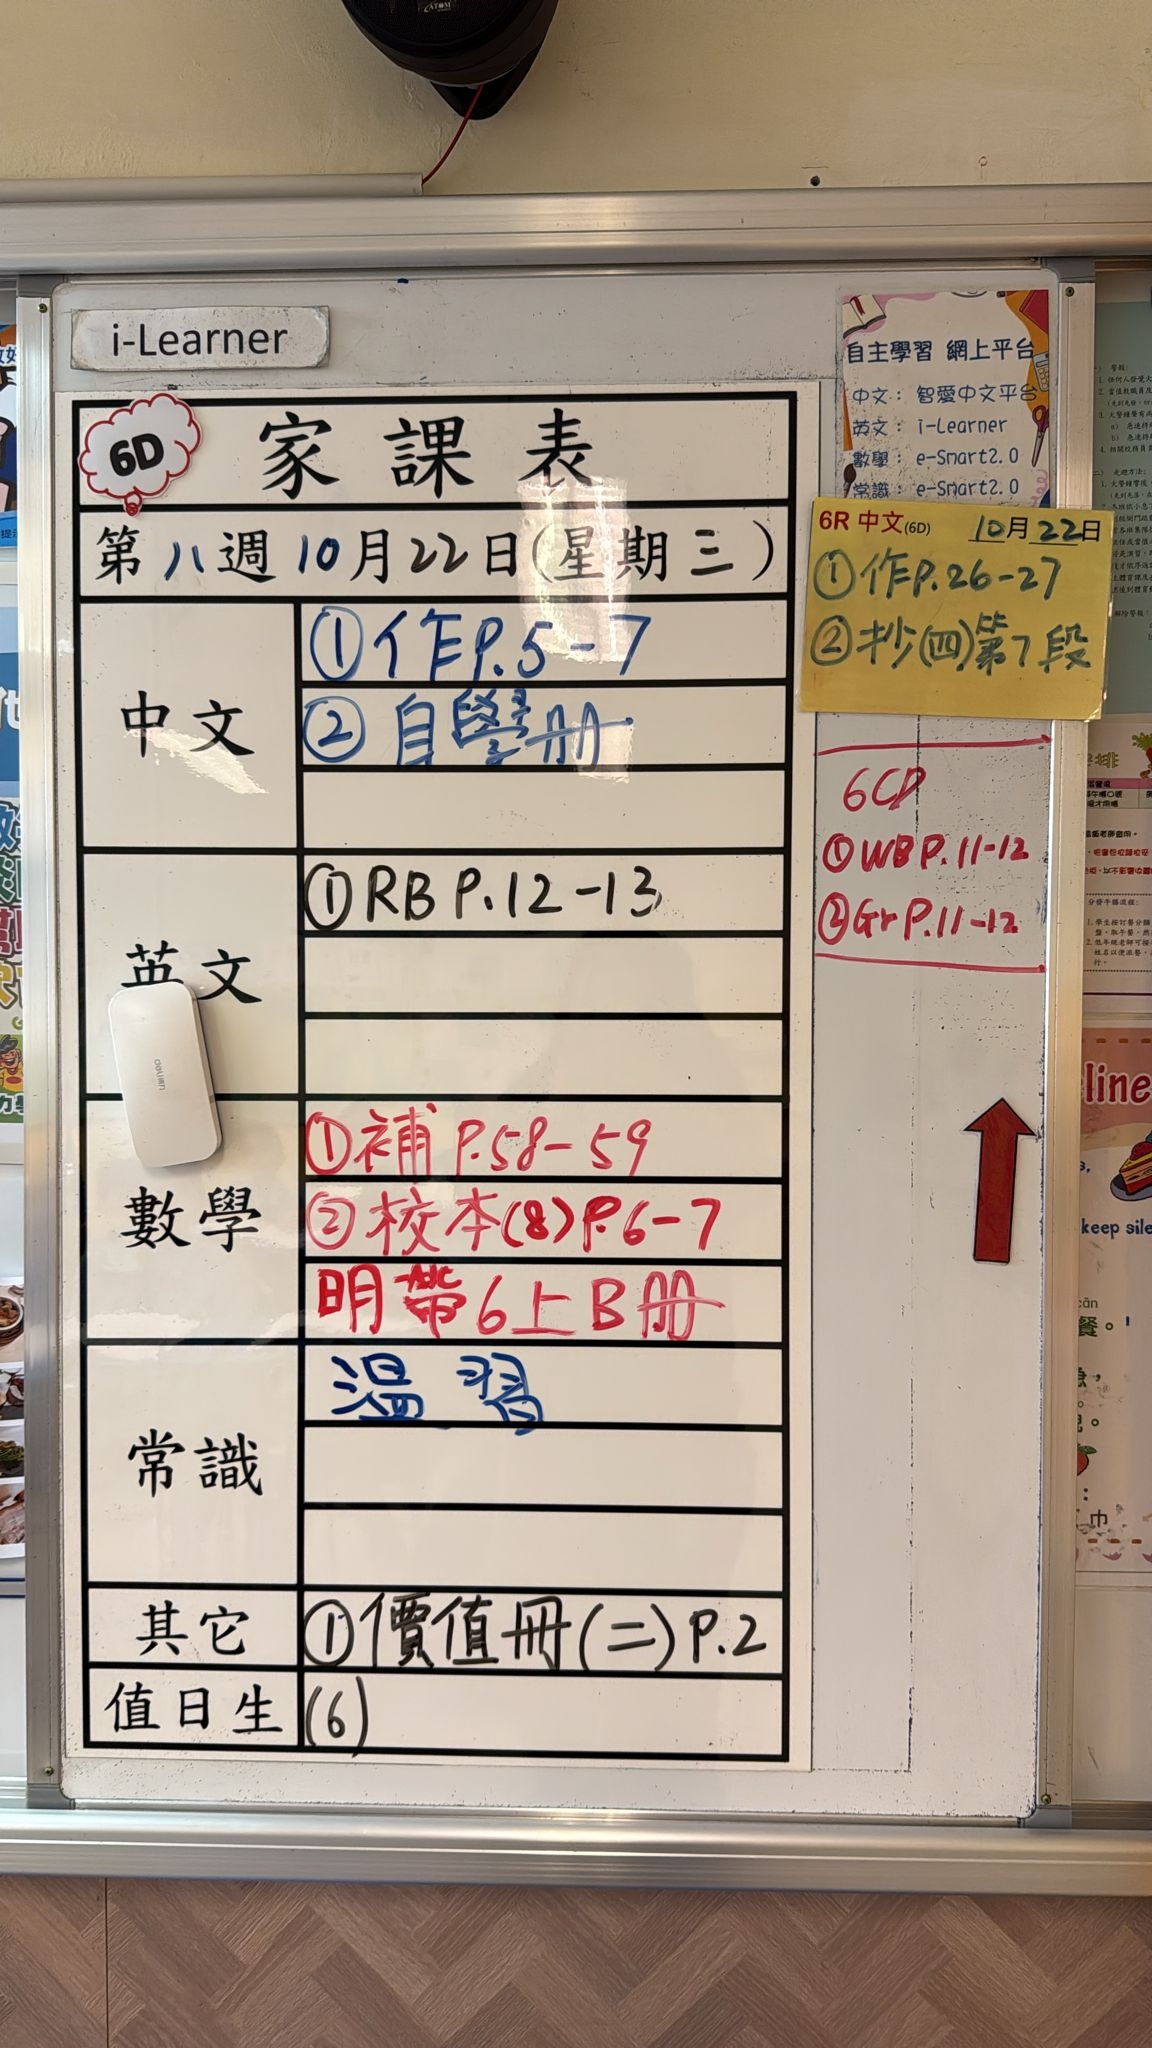 i-Learner
6D
家課表
第八週10月22日(星期三)
中文
①作P.5-7
②自學册
英文
①RB P.12-13
數學
①補 P.58-59
②校本(8)P.6-7
明帶6上B册
常識
溫習
其它
①價值冊(二)P.2
值日生
(6)
自主學習 網上平台
中文：智愛中文平台
英文：i-Learner
數學：e-Smart2.0
常識：e-Smart2.0
6R 中文(6D) 10月22日
①作P.26-27
②抄(四)第7段
6CD
①WB P.11-12
②Gr P.11-12
deli
ATOM
keep
餐。